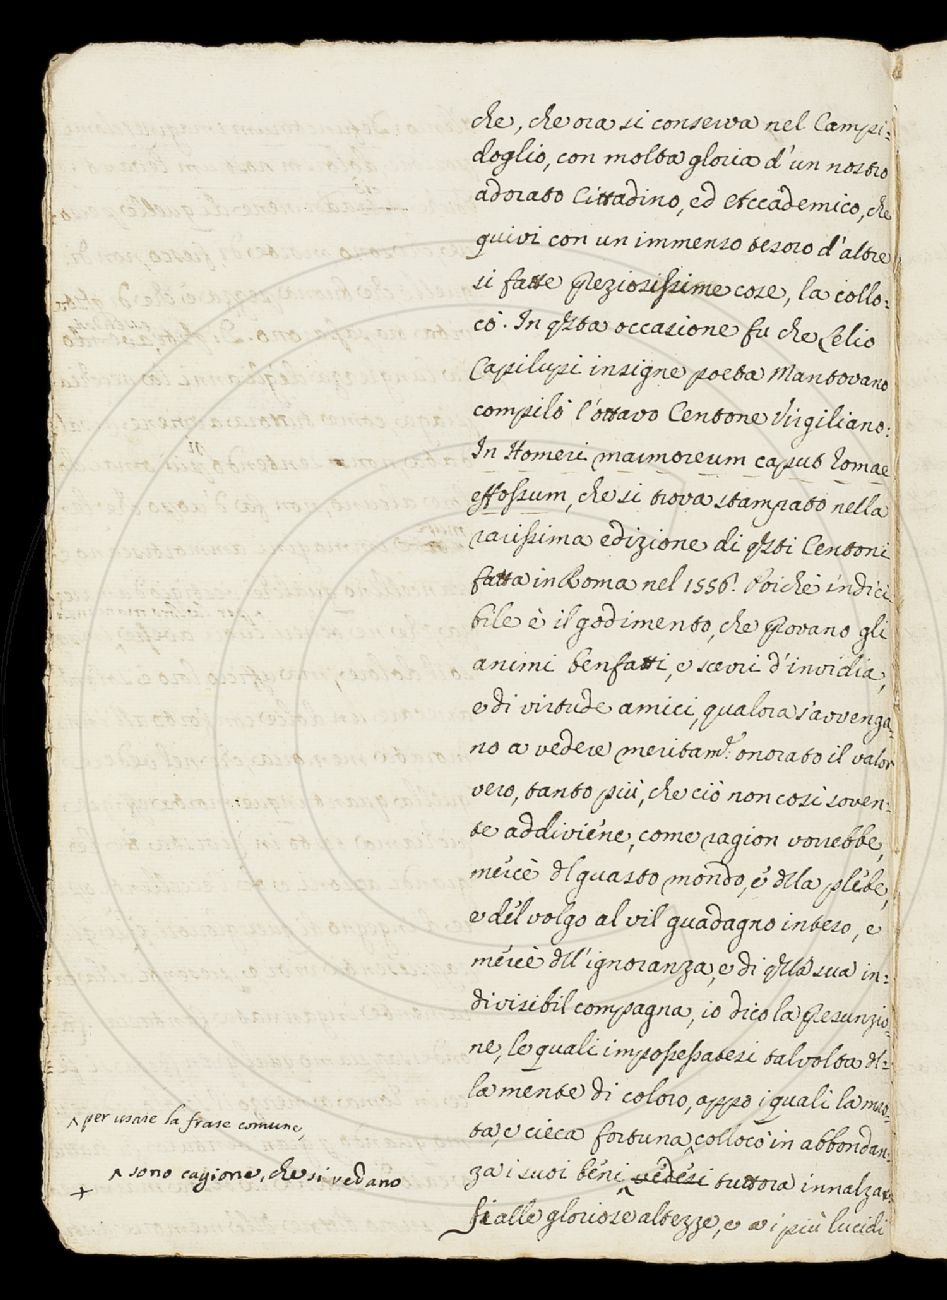 che, che ora si conserva nel Campi:
doglio, con molta gloria d'un nostro
adorato Cittadino, ed Accademico, che
quivi con un immenso tesoro d'altre
si fatte preziosissime cose, la collo:
cò. In qsta occasione fu che Lelio
Capilupi insigne poeta Mantovano
compilò l'ottavo Centone Virgiliano:
In Homeri marmoreum caput Romae
effossum, che si trova stampato nella
rarissima edizione di qsti Centoni
fatta in Roma nel 1556. Poichè indici
bile è il godimento, che provano gli
animi benfatti, e scevri d'invidia,
e di virtude amici, qualora s'avvenga
no a vedere meritamᵉ: onorato il valor
vero, tanto più, che ciò non così soven:
te addiviene, come ragion vorrebbe,
mercè dl guasto mondo, e dlla plebe,
e del volgo al vil guadagno inteso, e
mercè dll'ignoranza, e di qlla sua in:
divisibil compagna, io dico la presunzio
ne, le quali impossessatesi talvolta dl:
la mente di coloro, appo i quali la
ta, e cieca fortuna ^ collocò in abbondan
za i suoi beni ^ vedesi tuttora innalzar
si alle gloriose altezze, e a i più lucidi
^ per usare la frase comune,
^ sono cagione, che si vedano
+